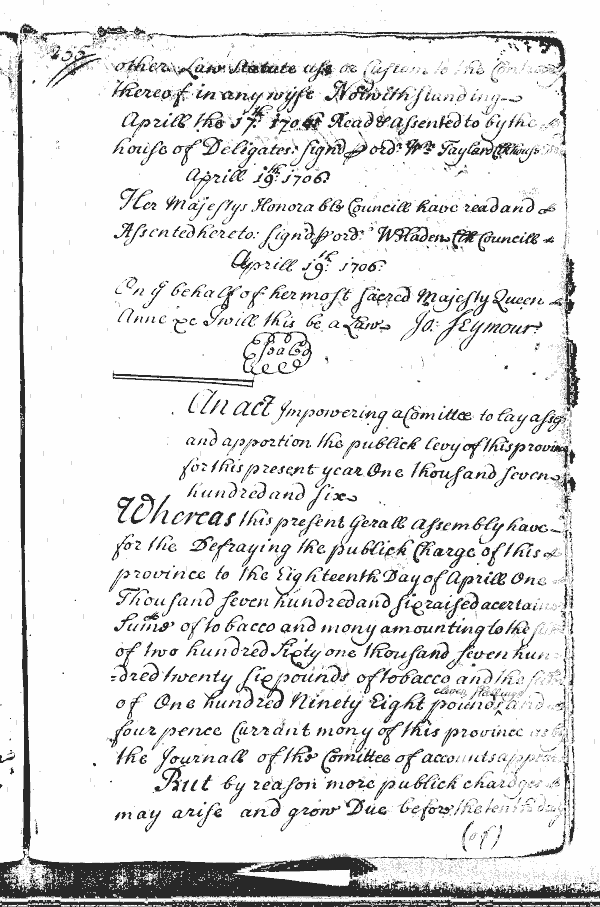 255
other Law Statute use or Custom to the Contrary
thereof in any wyse Notwithstanding
Aprill the 17th 1706 Read & assented to by the
house of Deligates. Signd p ordr Wm Taylard Clk house
Aprill 19th 1706
Her Majestys Honorable Councill have read and
Assented hereto: signd p ordr WBladen Clk Councill
Aprill 19th 1706
On ye behalf of her most sacred Majesty Queen
Anne &c I will this be a Law Jo: Seymour
An act Impowering a Comittee to lay asse
and apportion the publick Levy of this provin
for this present year One thousand seven
hundred and six
Whereas this present Gerall Assembly have
for the Defraying the publick Charge of this
province to the Eighteenth Day of Aprill One
Thousand seven hundred and six raised a certaine
Sume of tobacco and mony amounting to the sume
of two hundred Sixty one thousand seven hun-
=dred twenty six pounds of tobacco and the sume
of One hundred Ninety Eight pounds eleven shillings and
four pence Currant mony of this province as by
the Journall of the Comittee of accounts appears
But by reason more publick chardges
may arise and grow Due before the tenth day
(of)